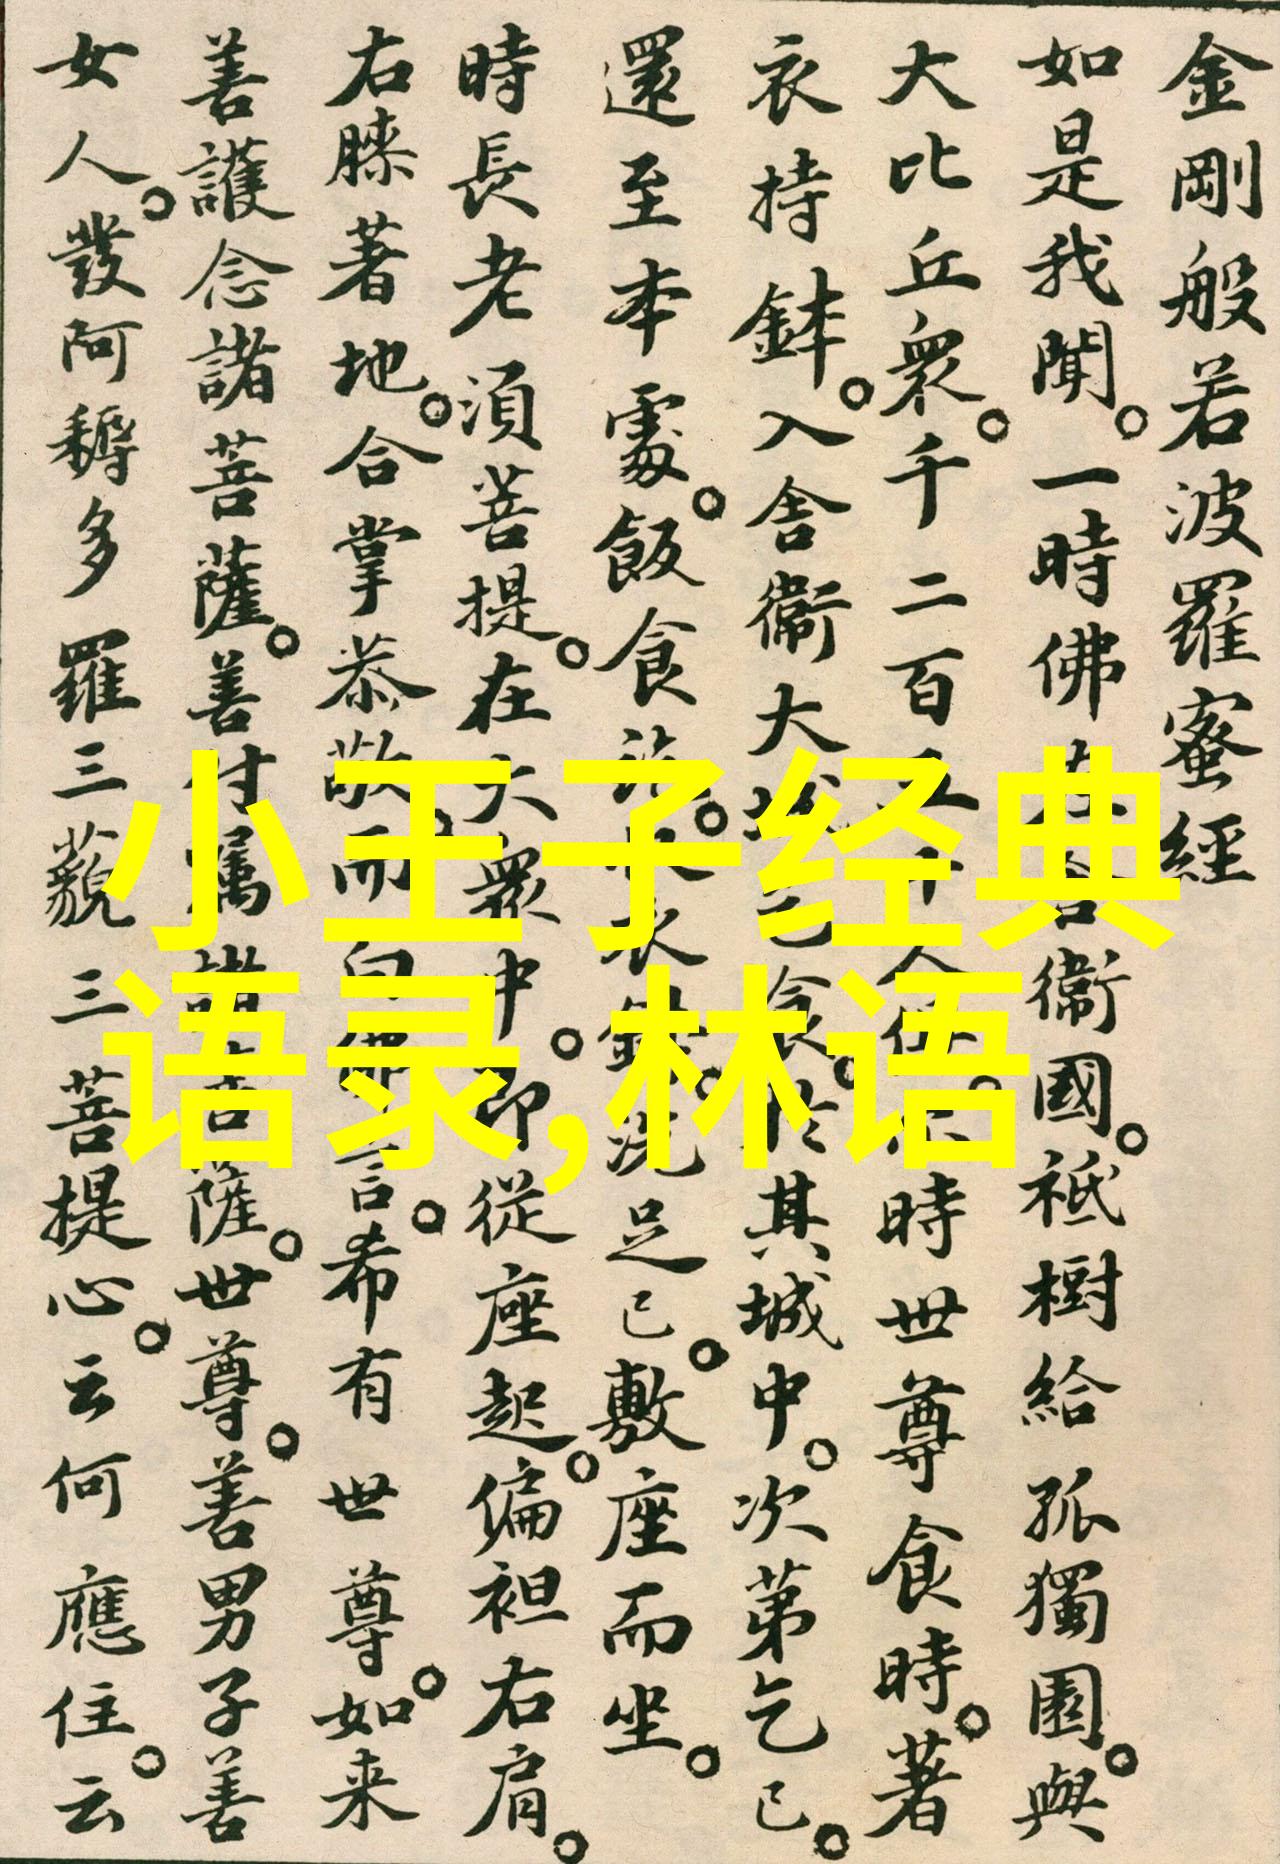 金剛般若波羅蜜經
如是我聞。一時佛在舍衛國。祇樹給孤獨園。與
大比丘眾。千二百五十人俱。爾時世尊食時。著
衣持鉢。入舍衛大城乞食。於其城中。次第乞已。
還至本處。飯食訖。收衣鉢。洗足已。敷座而坐。
時長老須菩提。在大眾中。即從座起。偏袒右肩。
右膝著地。合掌恭敬。而白佛言。希有世尊。如来
善護念諸菩薩。善付囑諸菩薩。世尊。善男子善
女人。發阿耨多羅三藐三菩提心。云何應住。云
小王子经典
语录,林语